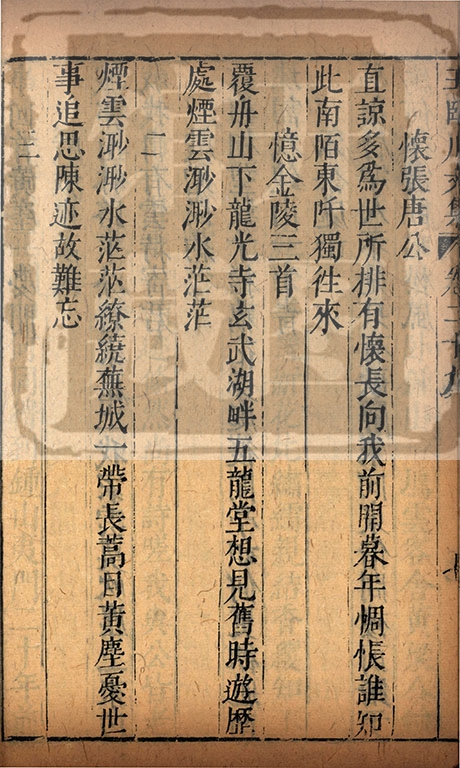 王臨川文集 卷二十九
懷張唐公
直諒多爲世所排有懷長向我前開暮年惆悵誰知
此南陌東阡獨徃來
憶金陵三首
覆舟山下龍光寺玄武湖畔五龍堂想見舊時遊歷
處煙雲渺渺水茫茫
二
煙雲渺渺水茫茫繚繞蕪城一帶長蒿目黃塵憂世
事追思陳迹故難忘
三